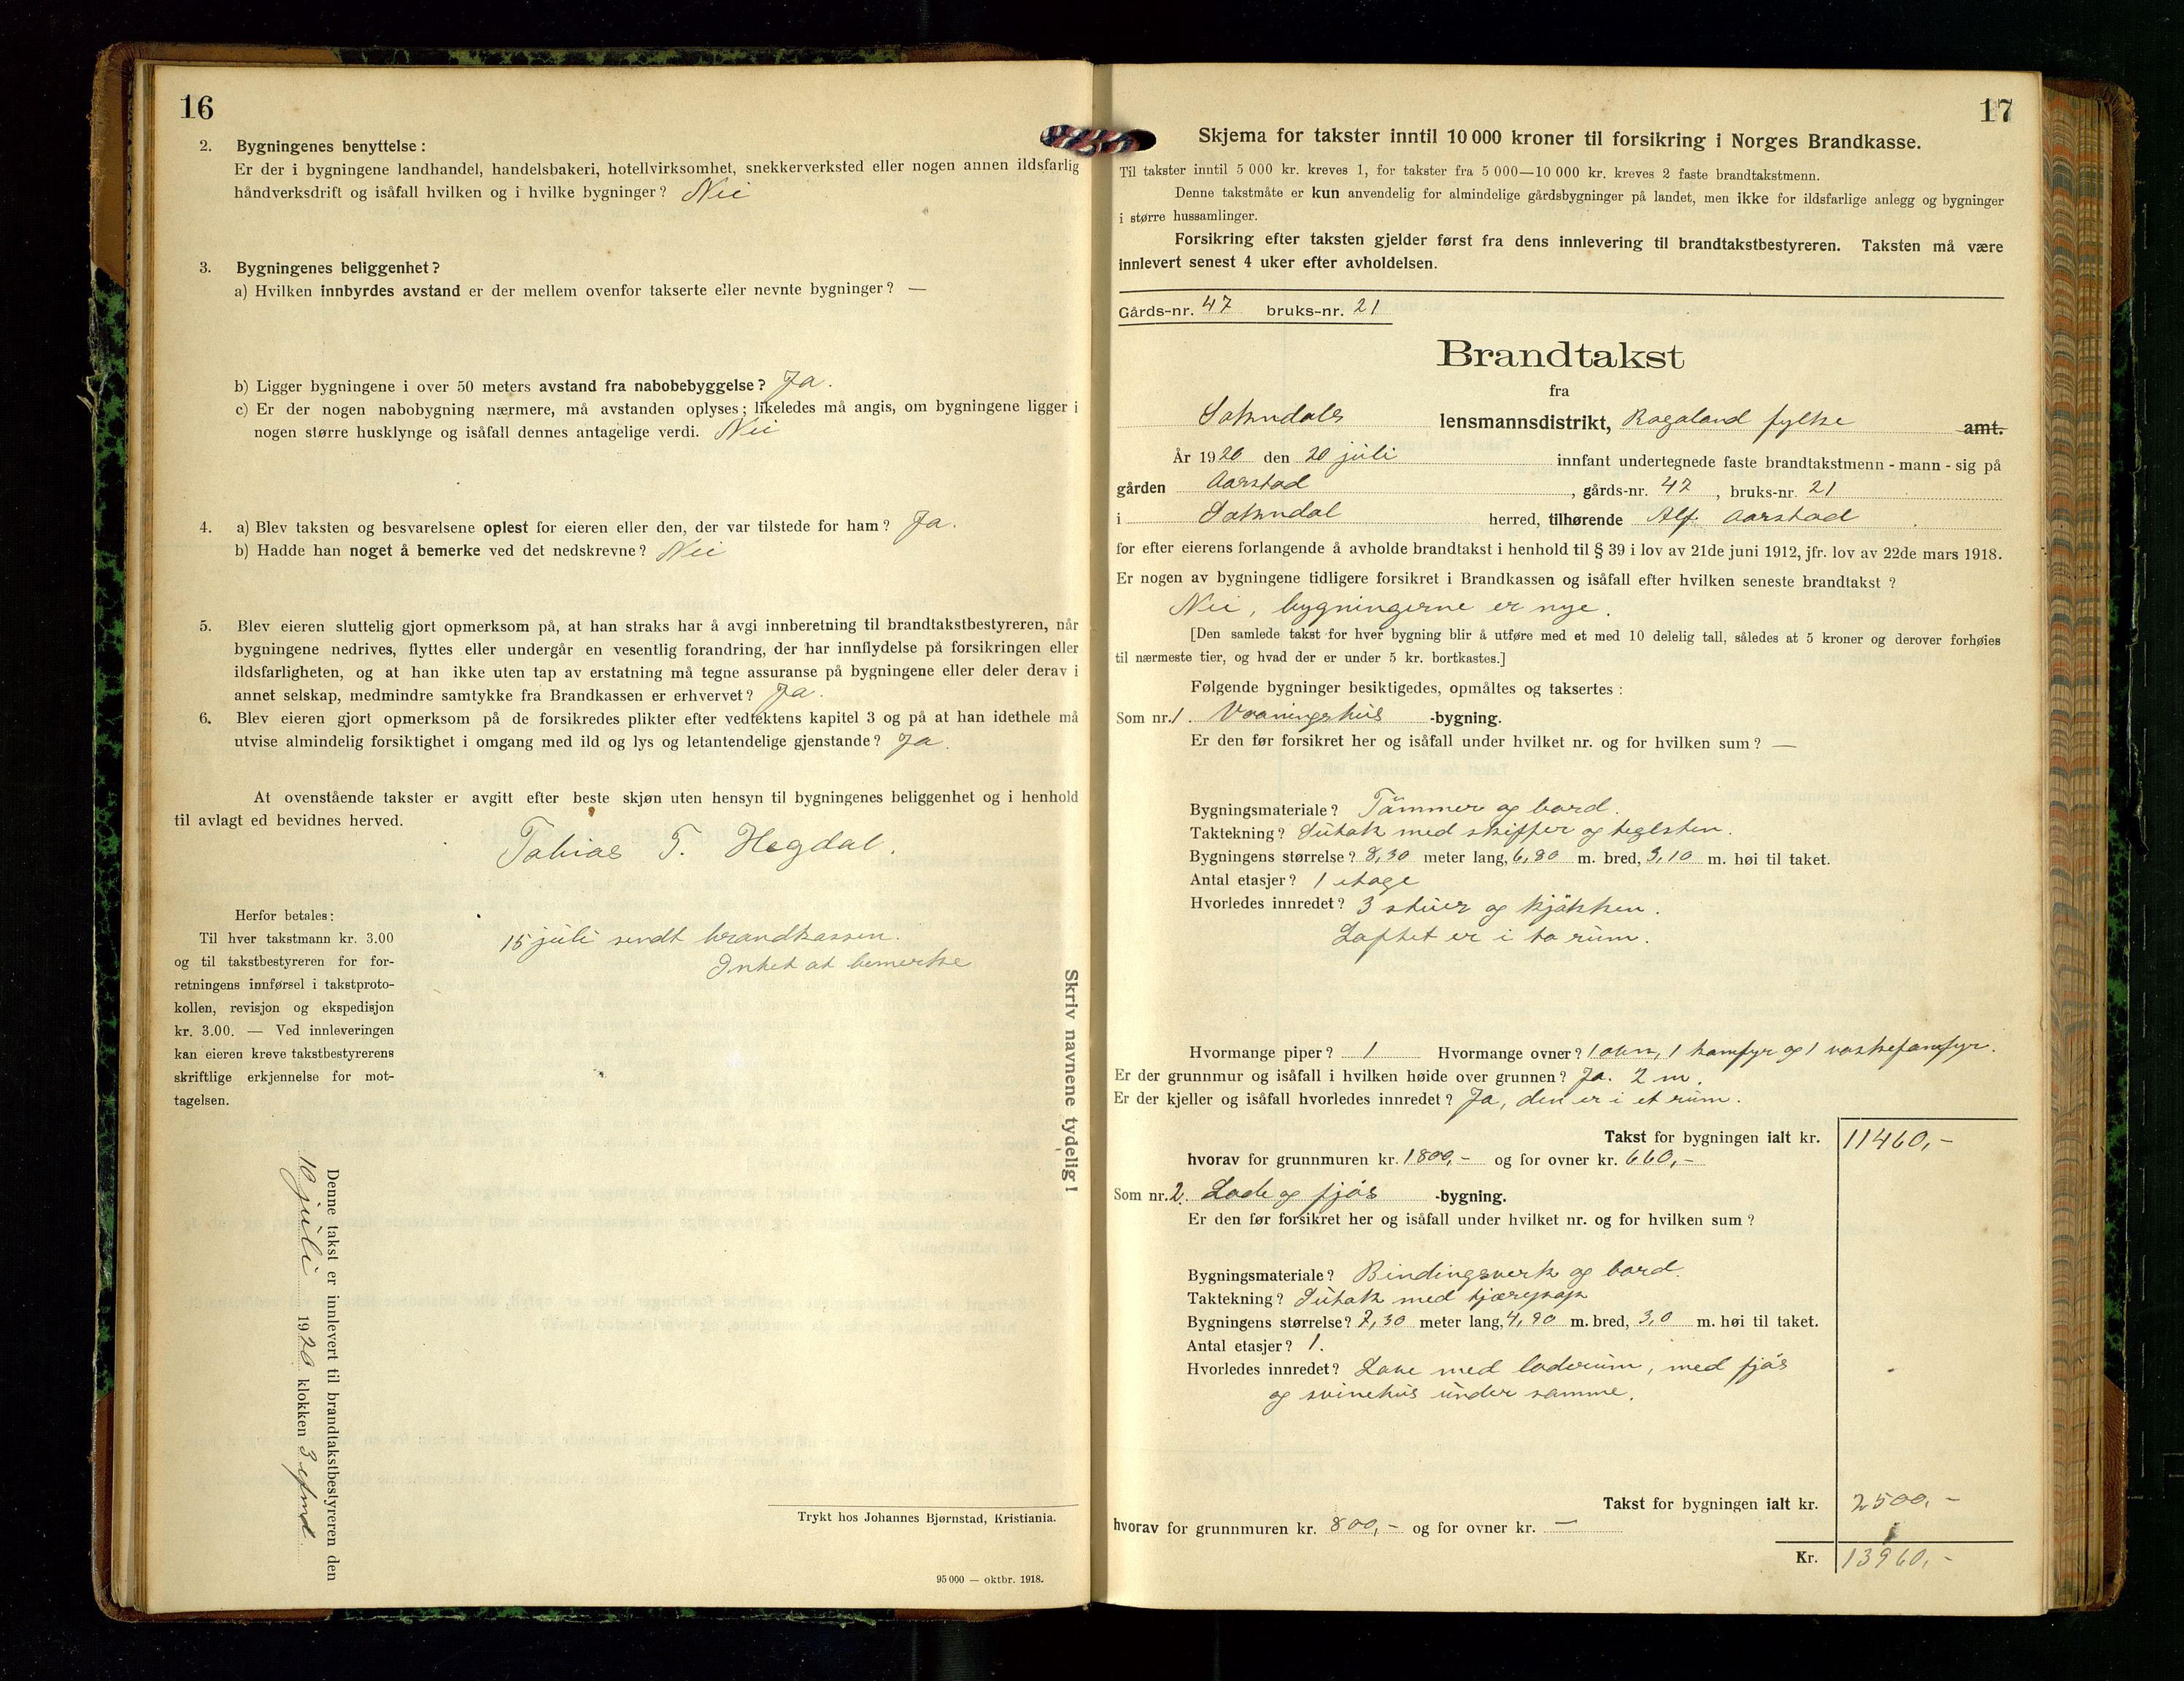 16
2. Bygningenes benyttelse :
Er der i bygningene landhandel, handelsbakeri, hotellvirksomhet, snekkerverksted eller nogen annen ildsfarlig
håndverksdrift og isåfall hvilken og i hvilke bygninger? Nei
3. Bygningenes beliggenhet?
a) Hvilken innbyrdes avstand er der mellem ovenfor takserte eller nevnte bygninger? —
b) Ligger bygningene i over 50 meters avstand fra nabobebyggelse? Ja.
c) Er der nogen nabobygning nærmere, må avstanden oplyses; likeledes må angis, om bygningene ligger i
nogen større husklynge og isåfall dennes antagelige verdi. Nei
4. a) Blev taksten og besvarelsene oplest for eieren eller den, der var tilstede for ham? Ja.
b) Hadde han noget å bemerke ved det nedskrevne? Nei
5. Blev eieren sluttelig gjort opmerksom på, at han straks har å avgi innberetning til brandtakstbestyreren, når
bygningene nedrives, flyttes eller undergår en vesentlig forandring, der har innflydelse på forsikringen eller
ildsfarligheten, og at han ikke uten tap av erstatning må tegne assuranse på bygningene eller deler derav i
annet selskap, medmindre samtykke fra Brandkassen er erhvervet? Ja.
6. Blev eieren gjort opmerksom på de forsikredes plikter efter vedtektens kapitel 3 og på at han idethele må
utvise almindelig forsiktighet i omgang med ild og lys og letantendelige gjenstande? Ja.
At ovenstående takster er avgitt efter beste skjøn uten hensyn til bygningenes beliggenhet og i henhold
til avlagt ed bevidnes herved.
Tobias T. Hegdal.
Herfor betales:
Til hver takstmann kr. 3.00
og til takstbestyreren for for-
retningens innførsel i takstproto-
kollen, revisjon og ekspedisjon
kr. 3.00. — Ved innleveringen
kan eieren kreve takstbestyrerens
skriftlige erkjennelse for mot-
tagelsen.
15 juli sendt brandkassen.
Intet at bemerke
Skriv navnene tydelig!
Denne takst er innlevert til brandtakstbestyreren den
10 juli 1920 klokken 3 efmd.
Trykt hos Johannes Bjørnstad, Kristiania.
95 000 — oktbr. 1918.
17
Skjema for takster inntil 10 000 kroner til forsikring i Norges Brandkasse.
Til takster inntil 5 000 kr. kreves 1, for takster fra 5 000—10 000 kr. kreves 2 faste brandtakstmenn.
Denne takstmåte er kun anvendelig for almindelige gårdsbygninger på landet, men ikke for ildsfarlige anlegg og bygninger
i større hussamlinger.
Forsikring efter taksten gjelder først fra dens innlevering til brandtakstbestyreren. Taksten må være
innlevert senest 4 uker efter avholdelsen.
Gårds-nr. 47 bruks-nr. 21
Brandtakst
fra
Sokndals lensmannsdistrikt, Rogaland fylke amt.
År 1920 den 20 juli innfant undertegnede faste brandtakstmenn - mann - sig på
gården Aarstad, gårds-nr. 47, bruks-nr. 21
i Sokndal herred, tilhørende Alf. Aarstad.
for efter eierens forlangende å avholde brandtakst i henhold til § 39 i lov av 21de juni 1912, jfr. lov av 22de mars 1918.
Er nogen av bygningene tidligere forsikret i Brandkassen og isåfall efter hvilken seneste brandtakst ?
Nei, bygningerne er nye.
[Den samlede takst for hver bygning blir å utføre med et med 10 delelig tall, således at 5 kroner og derover forhøies
til nærmeste tier, og hvad der er under 5 kr. bortkastes.]
Følgende bygninger besiktigedes, opmåltes og taksertes :
Som nr. 1. Vaaningshus -bygning.
Er den før forsikret her og isåfall under hvilket nr. og for hvilken sum? —
Bygningsmateriale? Tømmer og bord.
Taktekning? Sutak med skiffer og teglsten.
Bygningens størrelse? 8,30 meter lang, 6,80 m. bred, 3,10 m. høi til taket.
Antal etasjer? 1 etage
Hvorledes innredet? 3 stuer og kjøkken.
Loftet er i to rum.
Hvormange piper? 1 Hvormange ovner? 1 ovn, 1 komfyr og 1 vaskekomfyr.
Er der grunnmur og isåfall i hvilken høide over grunnen? Ja. 2 m.
Er der kjeller og isåfall hvorledes innredet? Ja, den er i et rum.
Takst for bygningen ialt kr. 11460,-
hvorav for grunnmuren kr. 1800,- og for ovner kr. 660,-
Som nr. 2. Lade og fjøs -bygning.
Er den før forsikret her og isåfall under hvilket nr. og for hvilken sum?
Bygningsmateriale? Bindingsverk og bord.
Taktekning? Sutak med tjærepap
Bygningens størrelse? 7,30 meter lang, 4,90 m. bred, 3,0 m. høi til taket.
Antal etasjer? 1.
Hvorledes innredet? Laave med laderum, med fjøs
og svinehus under samme.
Takst for bygningen ialt kr. 2500,-
hvorav for grunnmuren kr. 800,- og for ovner kr. —
Kr. 13960,-